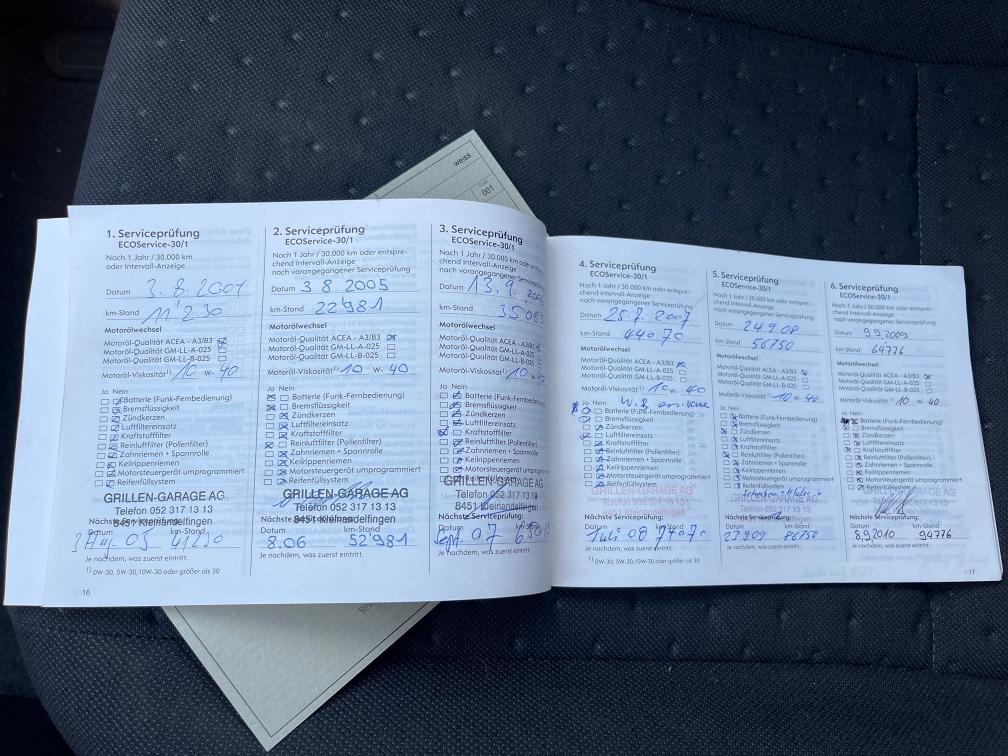 weiss
001
1. Serviceprüfung
ECOService-30/1
Nach 1 Jahr / 30.000 km
oder Intervall-Anzeige
Datum 3.8.2004
km-Stand 11'230
Motorölwechsel
Motoröl-Qualität ACEA - A3/B3
Motoröl-Qualität GM-LL-A-025
Motoröl-Qualität GM-LL-B-025
Motoröl-Viskosität 1) 10 W- 40
Ja Nein
Batterie (Funk-Fernbedienung)
Bremsflüssigkeit
Zündkerzen
Luftfiltereinsatz
Kraftstofffilter
Reinluftfilter (Pollenfilter)
Zahnriemen + Spannrolle
Keilrippenriemen
Motorsteuergerät umprogrammiert
Reifenfüllsystem
GRILLEN-GARAGE AG
Telefon 052 317 13 13
8451 Kleinandelfingen
Nächste Serviceprüfung:
Datum km-Stand
3 Aug. 05 41230
Je nachdem, was zuerst eintritt.
1) 0W-30, 5W-30,10W-30 oder größer als 30
16
2. Serviceprüfung
ECOService-30/1
Nach 1 Jahr / 30.000 km oder entspre-
chend Intervall-Anzeige
nach vorangegangener Serviceprüfung
Datum 3 8. 2005
km-Stand 22'981
Motorölwechsel
Motoröl-Qualität ACEA - A3/B3
Motoröl-Qualität GM-LL-A-025
Motoröl-Qualität GM-LL-B-025
Motoröl-Viskosität 1) 10 W- 40
Ja Nein
Batterie (Funk-Fernbedienung)
Bremsflüssigkeit
Zündkerzen
Luftfiltereinsatz
Kraftstofffilter
Reinluftfilter (Pollenfilter)
Zahnriemen + Spannrolle
Keilrippenriemen
Motorsteuergerät umprogrammiert
Reifenfüllsystem
GRILLEN-GARAGE AG
Telefon 052 317 13 13
8451 Kleinandelfingen
Nächste Serviceprüfung:
Datum km-Stand
8.06 52'981
Je nachdem, was zuerst eintritt.
3. Serviceprüfung
ECOService-30/1
Nach 1 Jahr / 30.000 km oder entspre-
chend Intervall-Anzeige
nach vorangegangener Serviceprüfung
Datum 13.9.
km-Stand
Motorölwechsel
Motoröl-Qualität ACEA - A3/B3
Motoröl-Qualität GM-LL-A-025
Motoröl-Qualität GM-LL-B-025
Motoröl-Viskosität 1) 10 W- 40
Ja Nein
Batterie (Funk-Fernbedienung)
Bremsflüssigkeit
Zündkerzen
Luftfiltereinsatz
Kraftstofffilter
Reinluftfilter (Pollenfilter)
Zahnriemen + Spannrolle
Keilrippenriemen
Motorsteuergerät umprogrammiert
Reifenfüllsystem
GRILLEN-GARAGE AG
Telefon 052 317 13 13
8451 Kleinandelfingen
Nächste Serviceprüfung:
Datum km-Stand
Sept. 07
Je nachdem, was zuerst eintritt.
4. Serviceprüfung
ECOService-30/1
Nach 1 Jahr / 30.000 km oder entspre-
chend Intervall-Anzeige
nach vorangegangener Serviceprüfung
Datum 25.7.2007
km-Stand 44070
Motorölwechsel
Motoröl-Qualität ACEA - A3/B3
Motoröl-Qualität GM-LL-A-025
Motoröl-Qualität GM-LL-B-025
Motoröl-Viskosität 1) 10 W- 40
Ja Nein
Batterie (Funk-Fernbedienung)
Bremsflüssigkeit
Zündkerzen
Luftfiltereinsatz
Kraftstofffilter
Reinluftfilter (Pollenfilter)
Zahnriemen + Spannrolle
Keilrippenriemen
Motorsteuergerät umprogrammiert
Reifenfüllsystem
GRILLEN-GARAGE AG
Telefon 052 317 13 13
Nächste Serviceprüfung:
Datum km-Stand
Juli 08 74070
Je nachdem, was zuerst eintritt.
1) 0W-30, 5W-30,10W-30 oder größer als 30
5. Serviceprüfung
ECOService-30/1
Nach 1 Jahr / 30.000 km oder entspre-
chend Intervall-Anzeige
nach vorangegangener Serviceprüfung
Datum 24.9.08
km-Stand 56750
Motorölwechsel
Motoröl-Qualität ACEA - A3/B3
Motoröl-Qualität GM-LL-A-025
Motoröl-Qualität GM-LL-B-025
Motoröl-Viskosität 1) 10 W- 40
Ja Nein
Batterie (Funk-Fernbedienung)
Bremsflüssigkeit
Zündkerzen
Luftfiltereinsatz
Kraftstofffilter
Reinluftfilter (Pollenfilter)
Zahnriemen + Spannrolle
Keilrippenriemen
Motorsteuergerät umprogrammiert
Reifenfüllsystem
Nächste Serviceprüfung:
Datum km-Stand
23.9.09 86750
Je nachdem, was zuerst eintritt.
6. Serviceprüfung
ECOService-30/1
Nach 1 Jahr / 30.000 km oder entspre-
chend Intervall-Anzeige
nach vorangegangener Serviceprüfung
Datum 9.9.2009
km-Stand 64776
Motorölwechsel
Motoröl-Qualität ACEA - A3/B3
Motoröl-Qualität GM-LL-A-025
Motoröl-Qualität GM-LL-B-025
Motoröl-Viskosität 1) 10 W- 40
Ja Nein
Batterie (Funk-Fernbedienung)
Bremsflüssigkeit
Zündkerzen
Luftfiltereinsatz
Kraftstofffilter
Reinluftfilter (Pollenfilter)
Zahnriemen + Spannrolle
Keilrippenriemen
Motorsteuergerät umprogrammiert
Reifenfüllsystem
Nächste Serviceprüfung:
Datum km-Stand
8.9.2010 94776
Je nachdem, was zuerst eintritt.
17